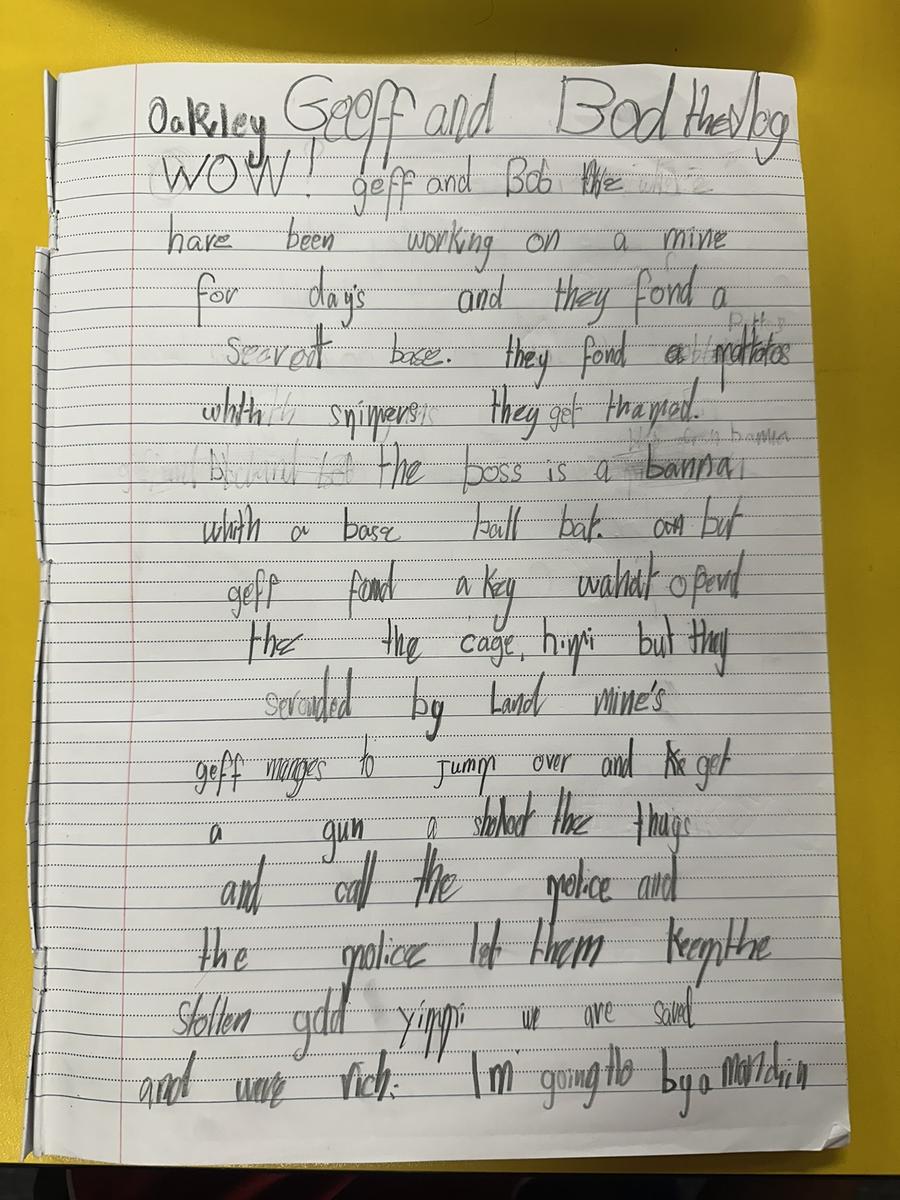 Oakley Geoff and Bod the Vlog
WOW! geff and Bob the
have been working on a mine
for day's and they fond a
secret base. they fond a pottatos
whith snipers they get traped.
the boss is a banna
whith a base ball bat. but
geff fond a key wahat opend
the the cage, hippi but they
serouded by Land mine's
geff manges to Jump over and get
a gun a shoot the thugs
and call the police and
the police let them Keep the
stollen gold yippi we are saved
and were rich. I'm going to by a